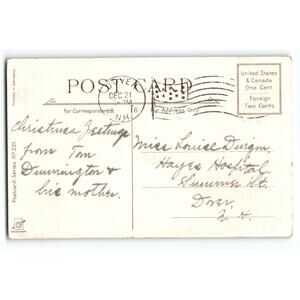 POST CARD
DOVER
DEC 21
N.H.
for Correspondence
for Address Only
United States
& Canada
One Cent
Foreign
Two Cents
Printed in Germany.
Postcard-Series № 221.
Christmas Greetings
from Tom
Dunnington &
his mother.
Miss Louise Durgin.
Hayes Hospital
Summer St.
Dover,
N. H.